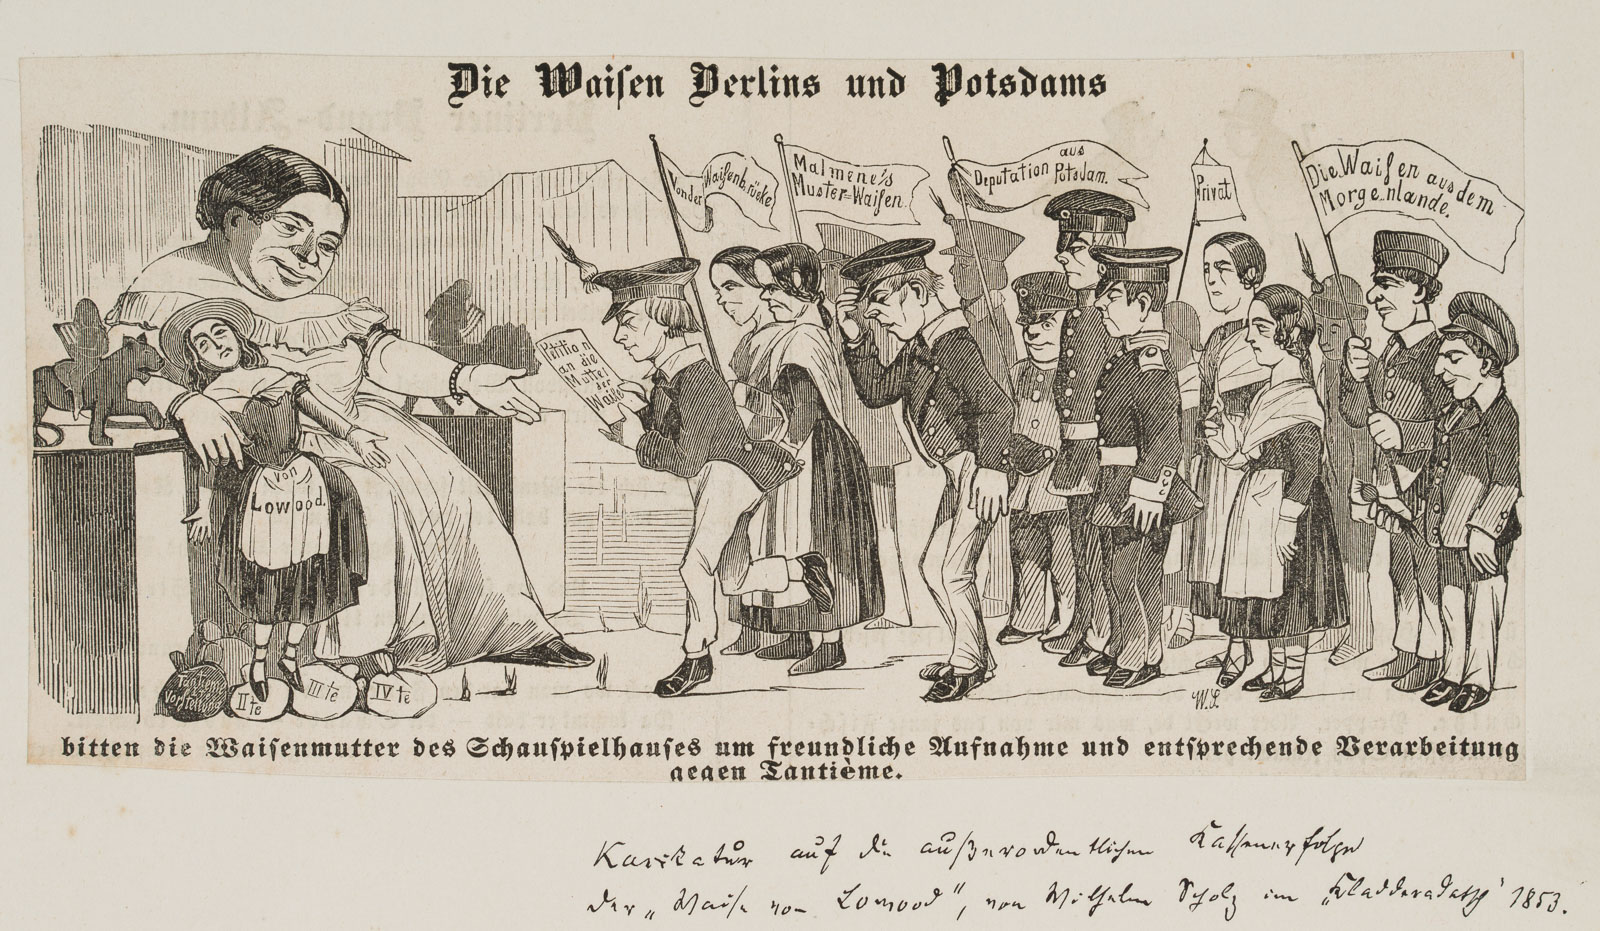 Die Waiſen Berlins und Potsdams
Von der Waiſenbrücke
Malmene's
Muster=Waiſen.
aus
Deputation Potsdam.
Privat
Die Waiſen aus dem
Morgenlande.
Petition
an die
Mutter
der
Waiſ
Von
Lowood.
Vorſtellung
II te
III te
IV te
W. S.
bitten die Waiſenmutter des Schauſpielhauſes um freundliche Aufnahme und entſprechende Verarbeitung
gegen Tantième.
Karikatur auf die außerordentlichen Kassenerfolge
der „Waise von Lowood“, von Wilhelm Scholz im „Kladderadatsch“ 1853.